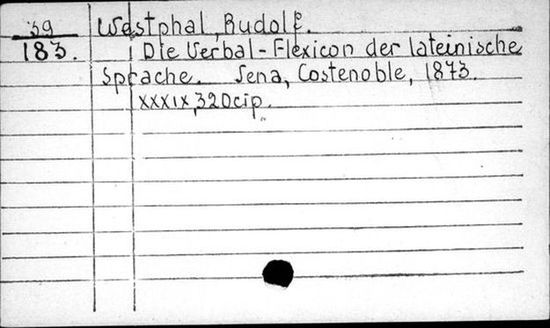 39 Westphal, Rudolf.
183. Die Verbal-Flexicon der lateinische
Sprache. Jena, Costenoble, 1873.
XXXIX, 320cip.